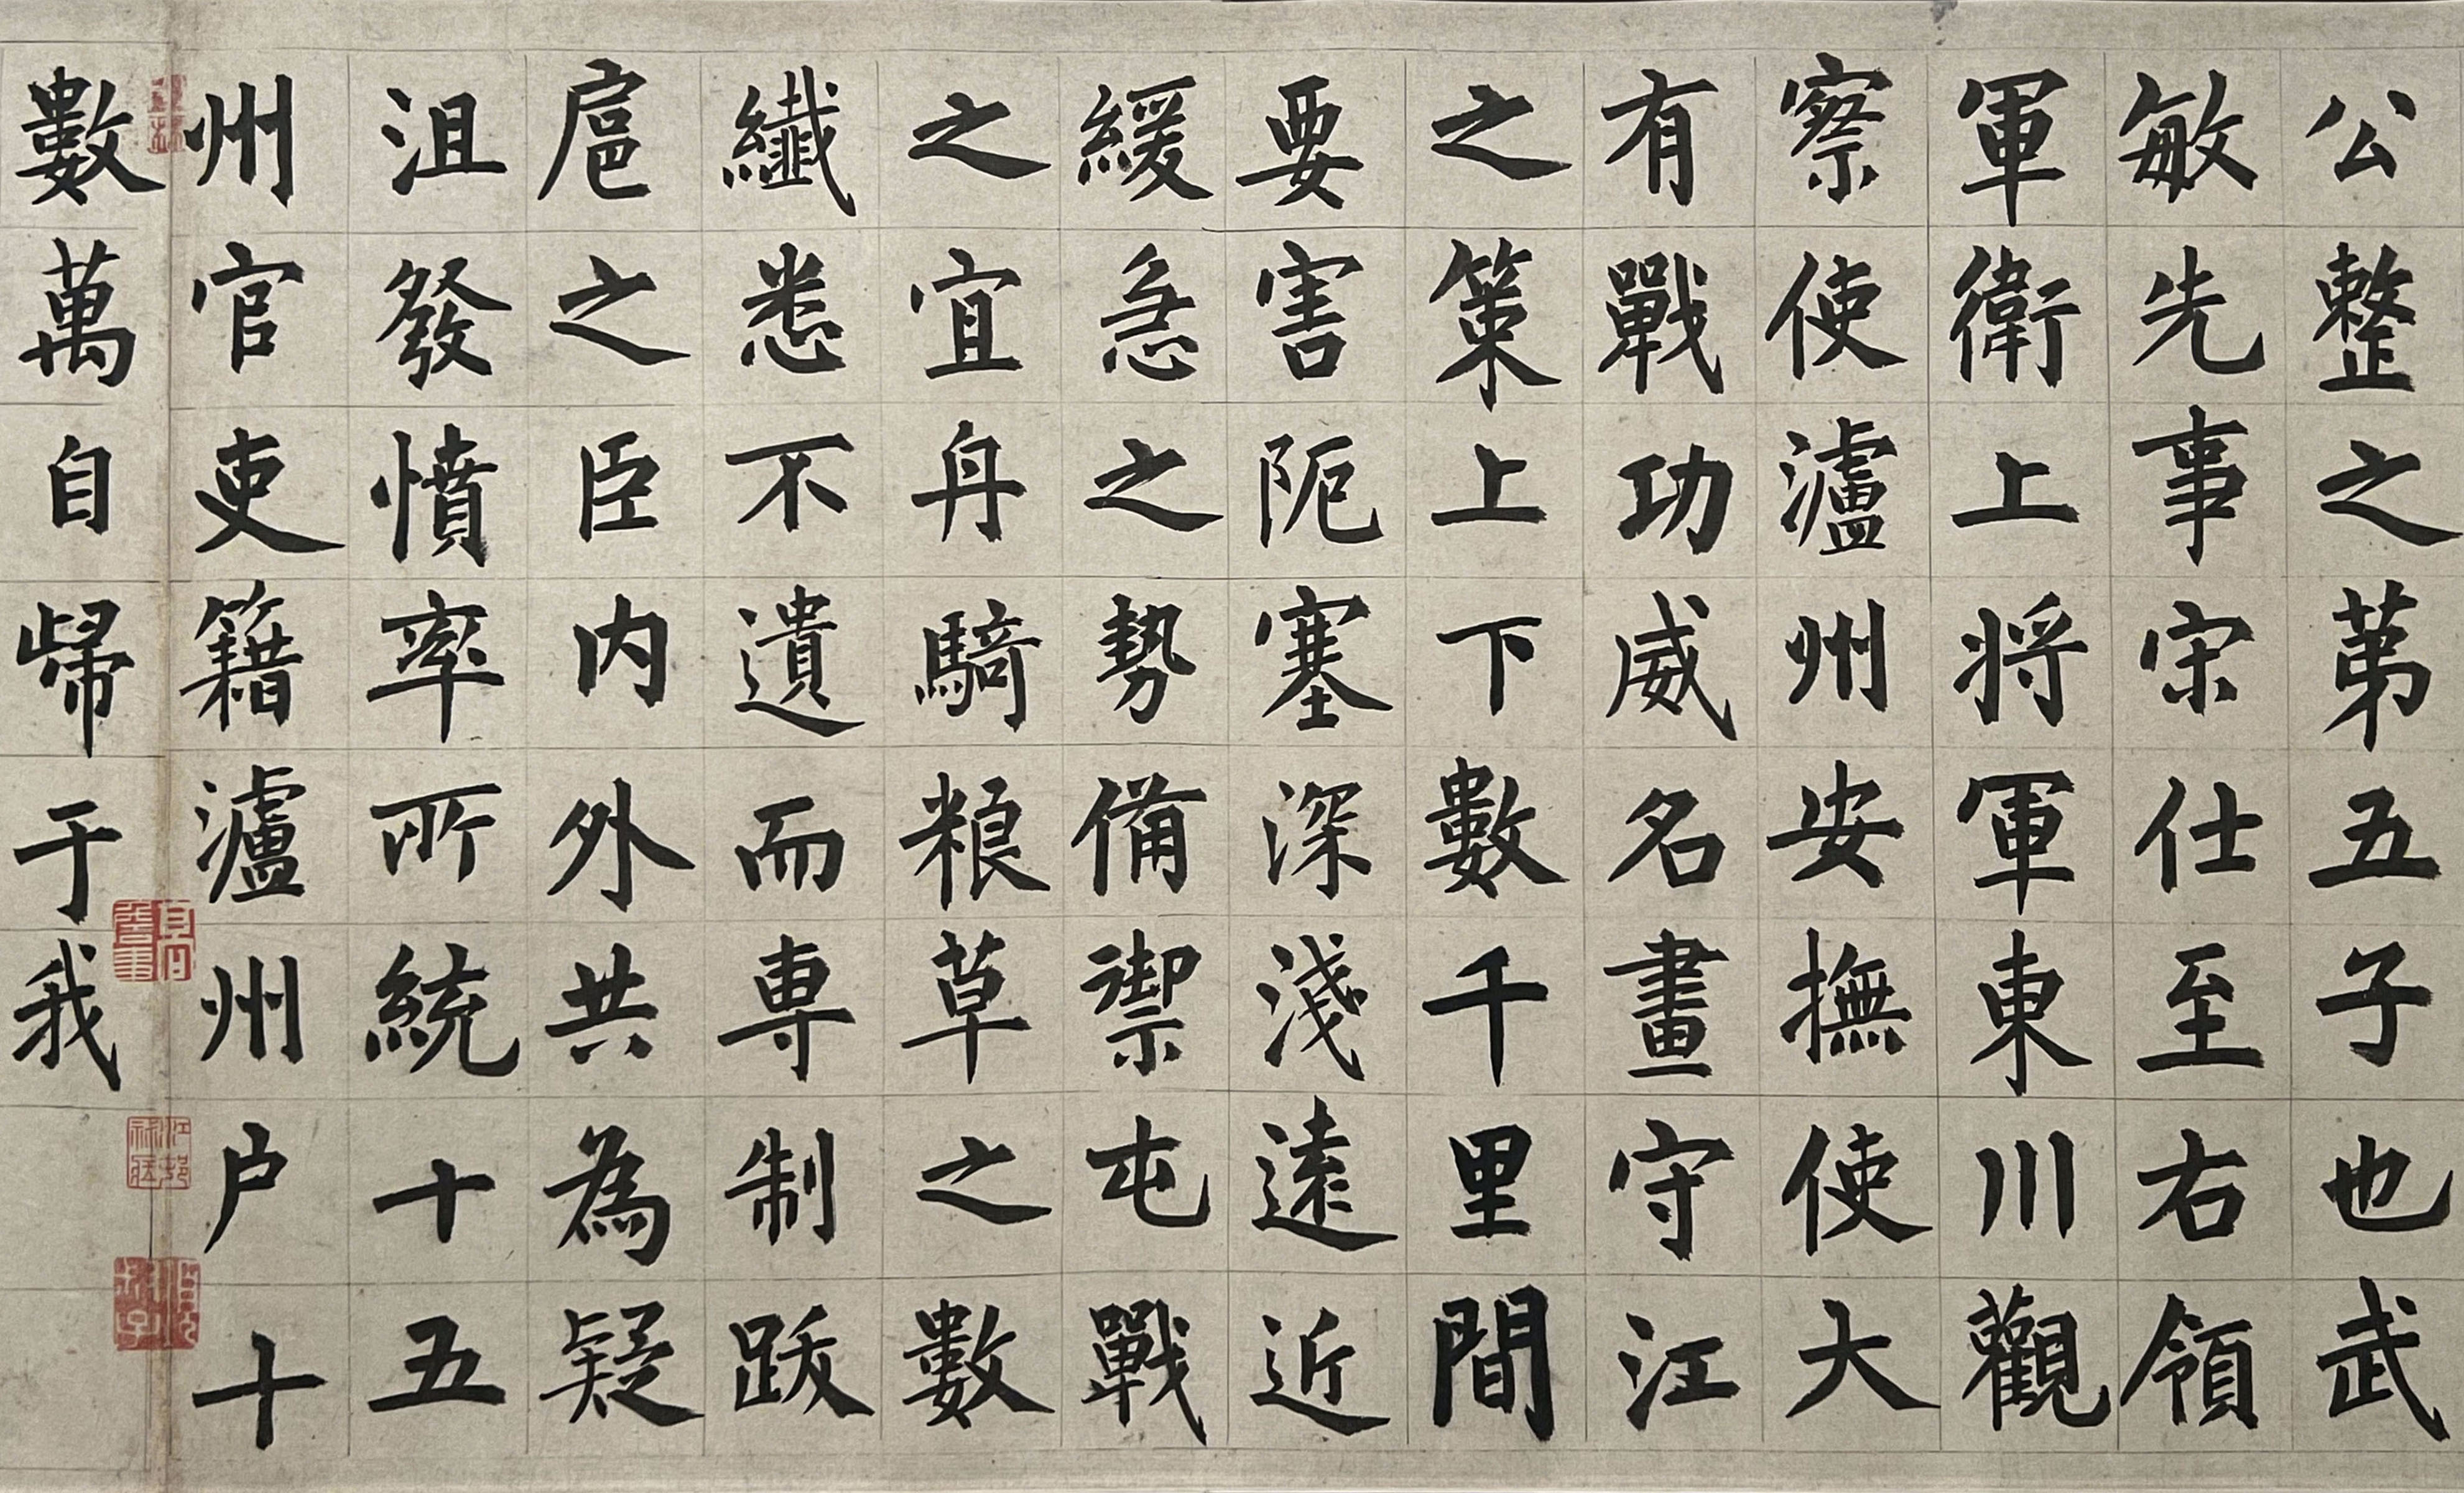 公整之苐五子也武
敏先事宋仕至右領
軍衛上將軍東川觀
察使瀘州安撫使大
有戰功威名畫守江
之策上下數千里間
要害阨塞深淺遠近
緩急之勢備禦屯戰
之宜舟騎粮草之數
纖悉不遺而専制跋
扈之臣内外共為疑
沮發憤率所統十五
州官吏籍瀘州户十
數萬自歸于我